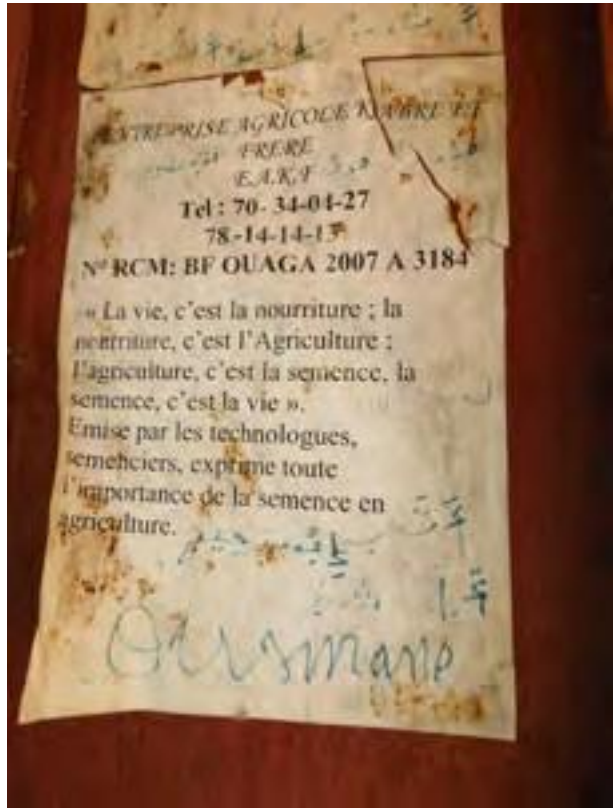 ENTREPRISE AGRICOLE KIABRE ET
FRERE
E.A.K.F
Tel : 70- 34-04-27
78-14-14-13
N° RCM: BF OUAGA 2007 A 3184
« La vie, c’est la nourriture ; la
nourriture, c’est l’Agriculture ;
l’agriculture, c’est la semence, la
semence, c’est la vie ».
Emise par les technologues,
semenciers, exprime toute
l’importance de la semence en
agriculture.
Ousmane